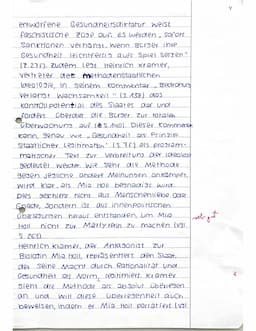 entworfene Gesundheitsdiktatur weist
faschistische Züge auf. Es werden „sofort
Sanktionen verhängt, wenn Bürger ihre
Gesundheit leichtfertig aufs Spiel setzen."
Zudem legt Heinrich Kramer,
Vertreter der methodenstaatlichen
Ideologie, in seinem Kommentar „Bedrohung
verlangt Wachsamkeit" das
Kontrollpotential des Staates dar und
fordert überdies die Bürger zur
Überwachung auf. Dieser Kommentar
kann, genau wie „Gesundheit als Prinzip
staatlicher Legitimation" als program-
matischer Text zur Verbreitung der Ideologie
gedeutet werden. Wie sehr die Methode
gegen jegliche andere Meinungen ankämpft,
wird klar, als Mia Holl begnadigt wird.
Dies geschieht nicht aus Menschenliebe oder
Gnade, sondern ist aus innenpolitischen
Überlegungen heraus entstanden, um Mia
Holl nicht zur Märtyrerin zu machen (vgl.
Heinrich Kramer, der Antagonist zur
Biologin Mia Holl, repräsentiert den Staat,
der seine Macht durch Rationalität und
Gesundheit als Norm legitimiert. Kramer
sieht die Methode als absolut überlegen
an und will diese Überlegenheit auch
beweisen, indem er Mia Holl